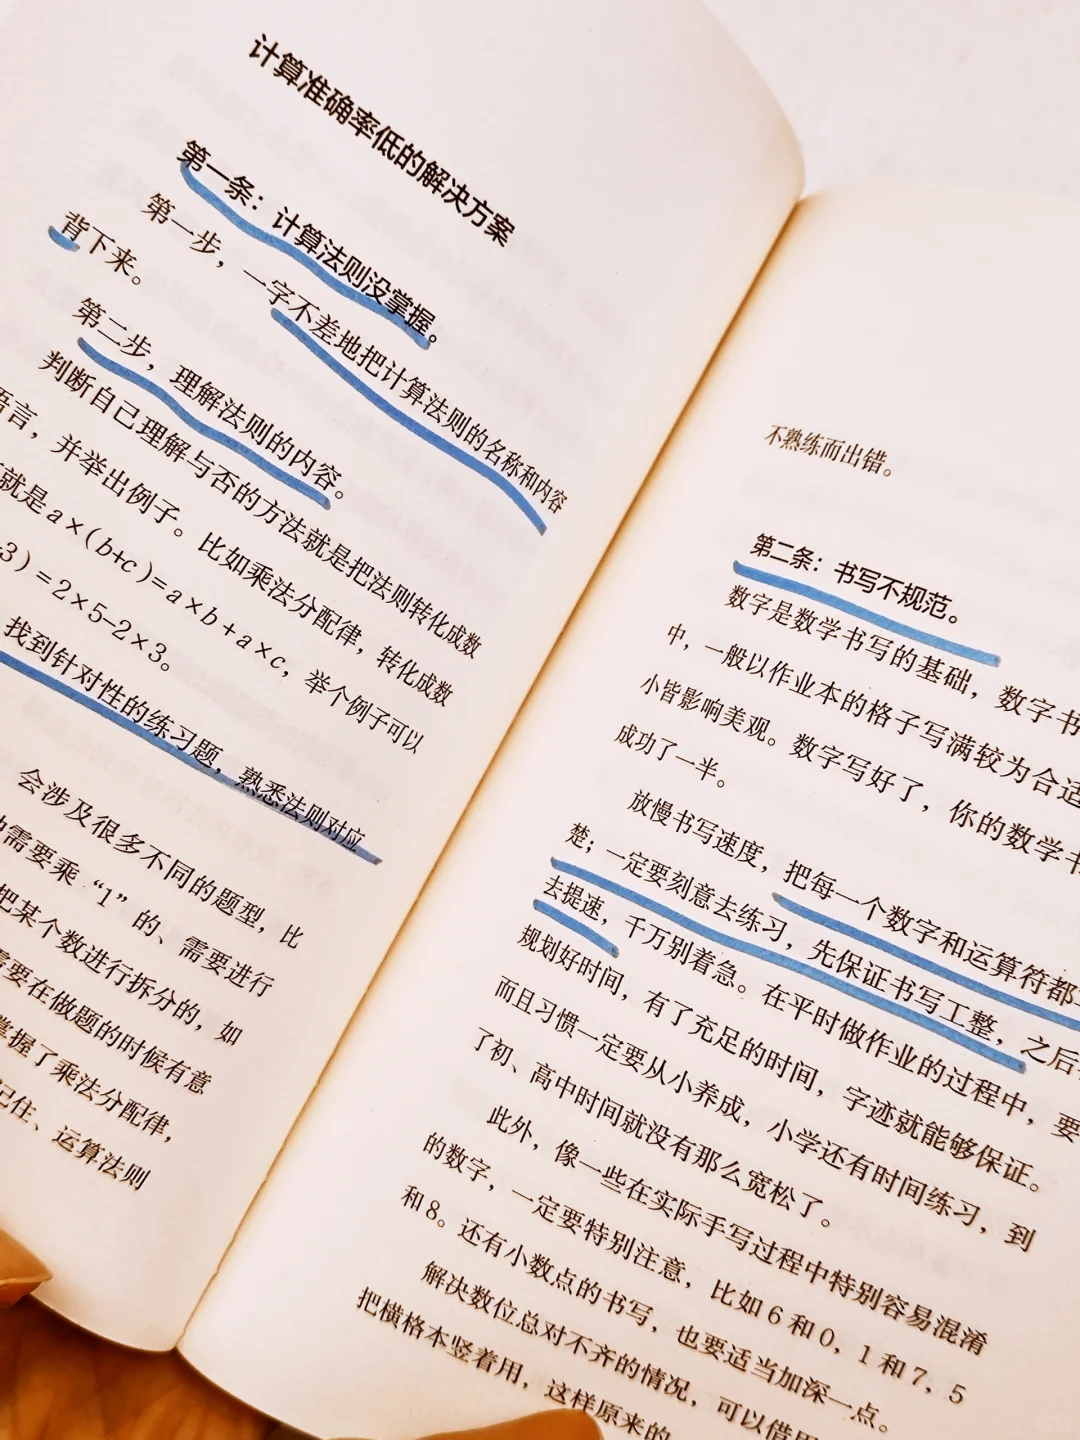 计算准确率低的解决方案
第一条：计算法则没掌握。
第一步，一字不差地把计算法则的名称和内容
背下来。
第二步，理解法则的内容。
判断自己理解与否的方法就是把法则转化成数
语言，并举出例子。比如乘法分配律，转化成数
就是a×(b+c)=a×b+a×c，举个例子可以
3)=2×5-2×3。
找到针对性的练习题，熟悉法则对应
会涉及很多不同的题型，比
需要乘“1”的、需要进行
把某个数进行拆分的，如
需要在做题的时候有意
掌握了乘法分配律，
记住、运算法则
不熟练而出错。
第二条：书写不规范。
数字是数学书写的基础，数字书
中，一般以作业本的格子写满较为合适
小皆影响美观。数字写好了，你的数学书
成功了一半。
放慢书写速度，把每一个数字和运算符都
楚；一定要刻意去练习，先保证书写工整，之后
去提速，千万别着急。在平时做作业的过程中，要
规划好时间，有了充足的时间，字迹就能够保证。
而且习惯一定要从小养成，小学还有时间练习，到
了初、高中时间就没有那么宽松了。
此外，像一些在实际手写过程中特别容易混淆
的数字，一定要特别注意，比如6和0，1和7，5
和8。还有小数点的书写，也要适当加深一点。
解决数位总对不齐的情况，可以借用
把横格本竖着用，这样原来的